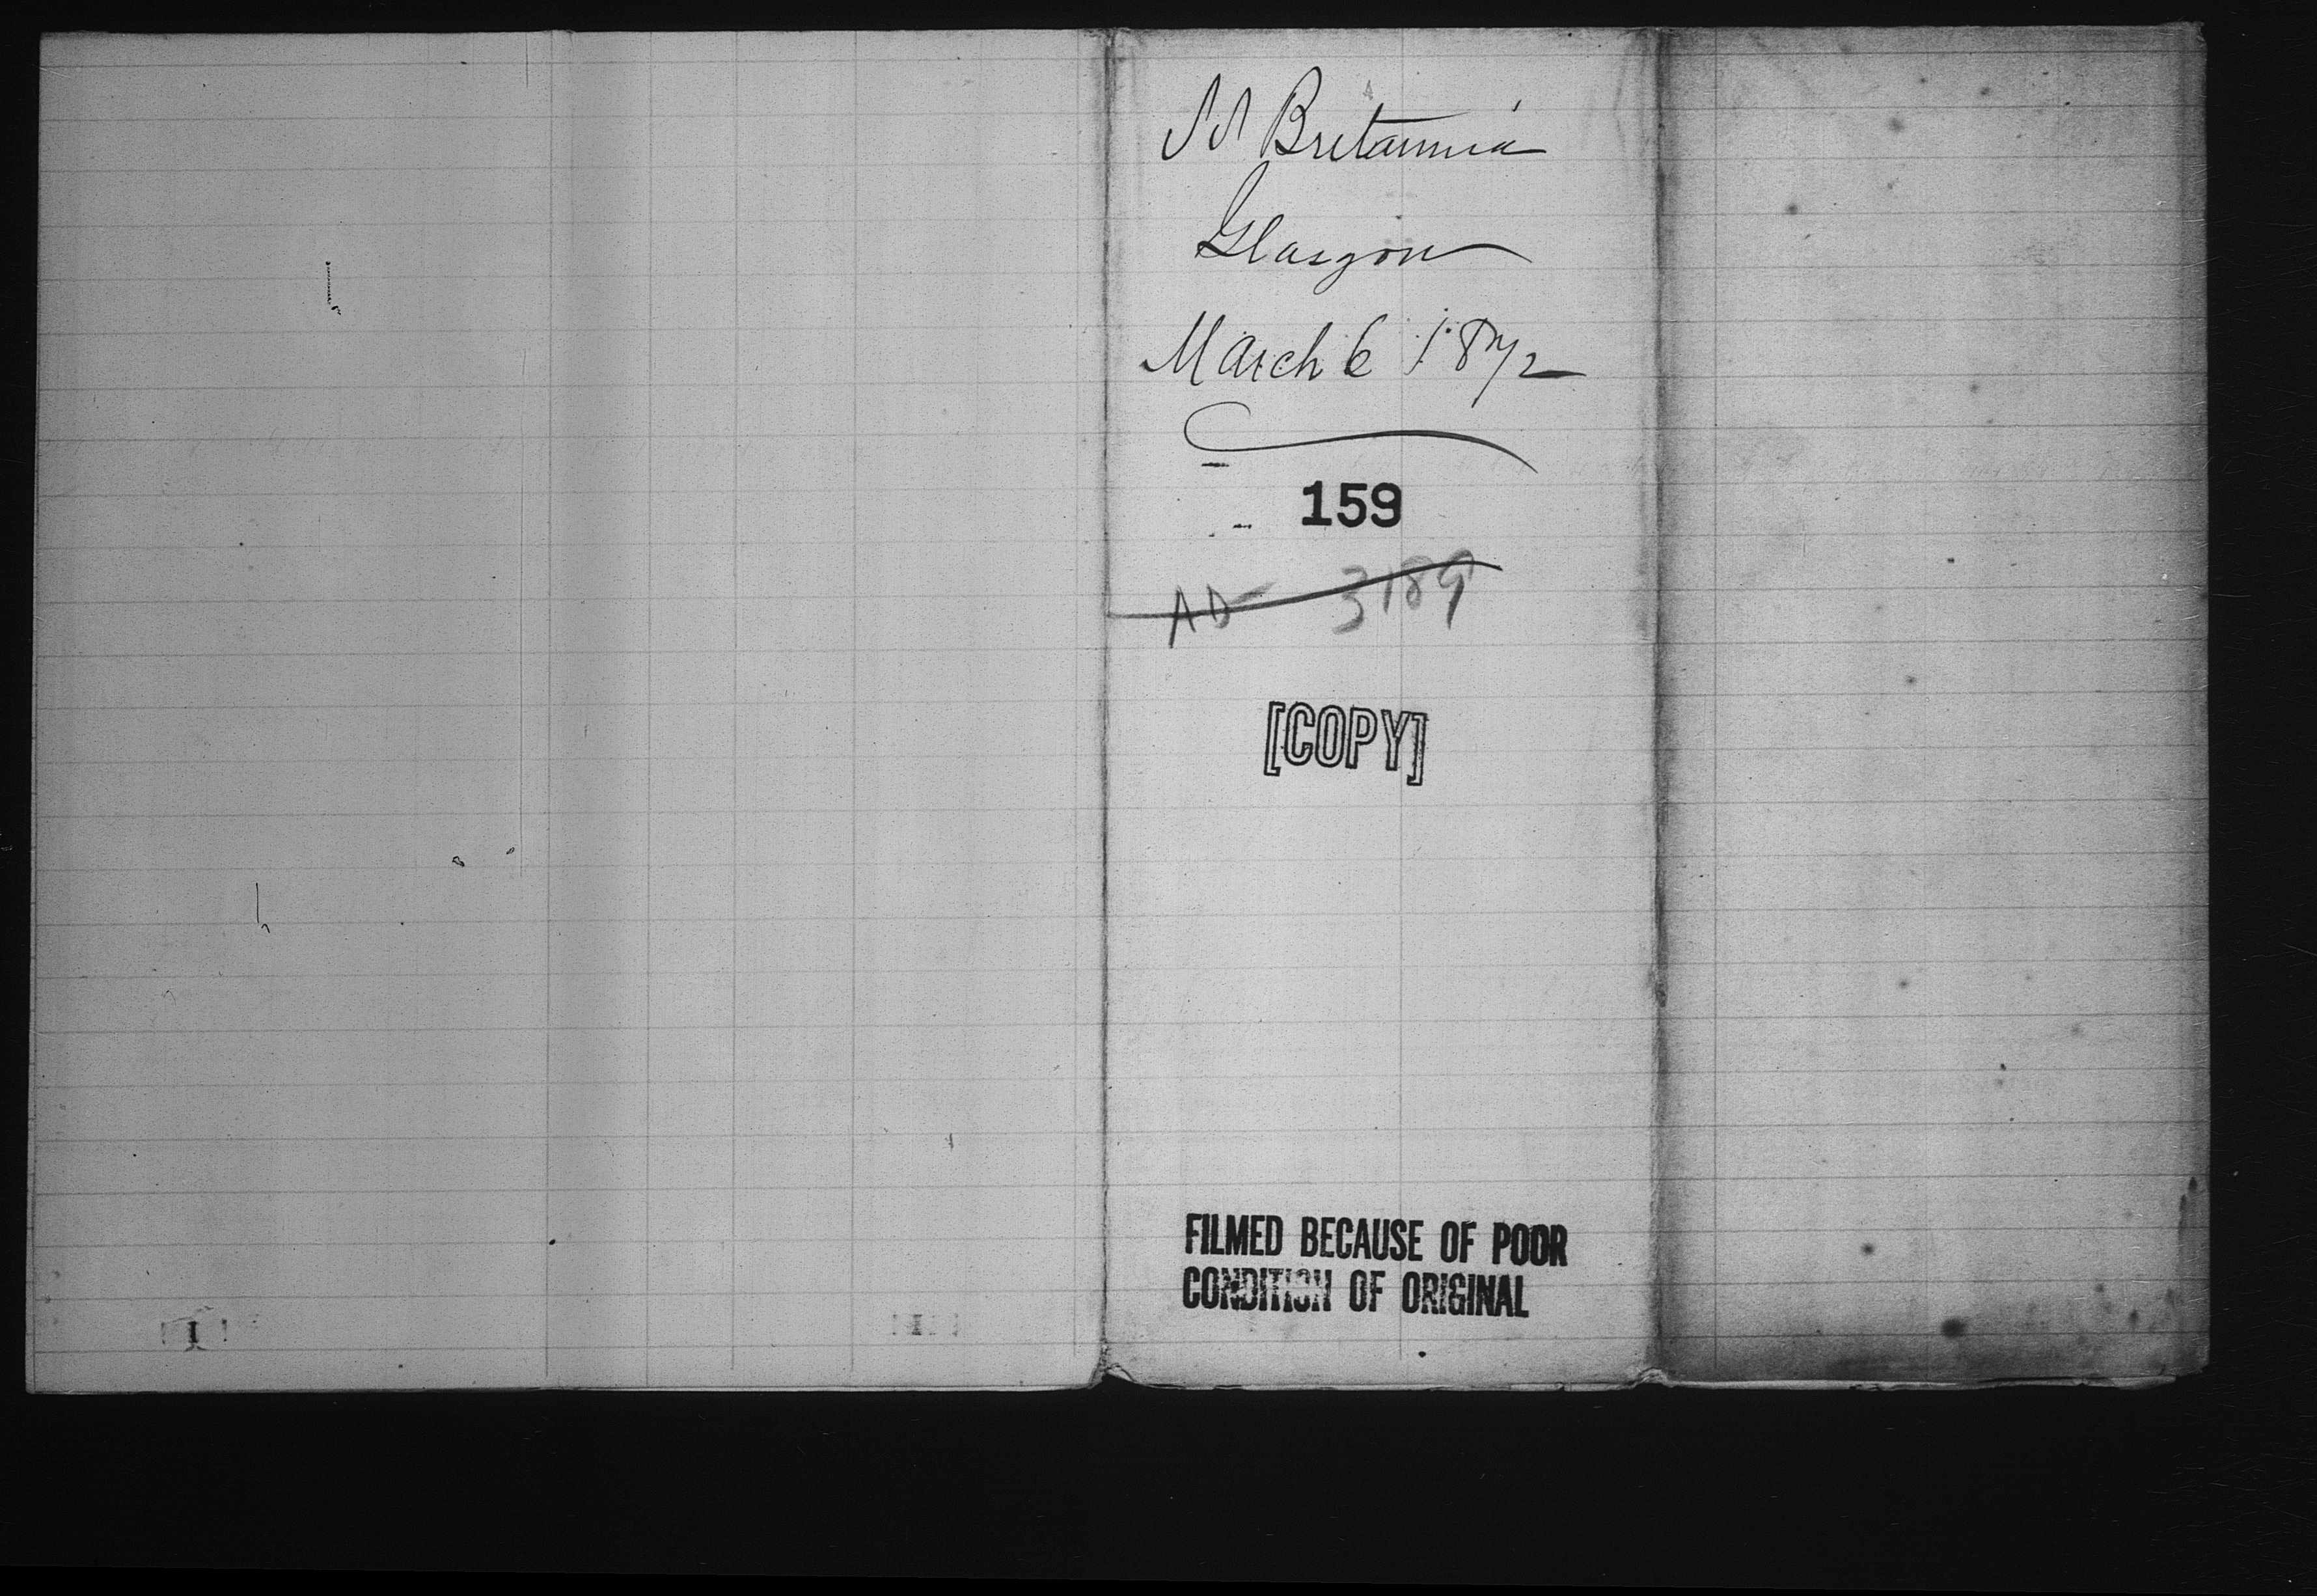 SS Britannia
Glasgow
March 6 1872
159
AD 3189
[COPY]
FILMED BECAUSE OF POOR
CONDITION OF ORIGINAL